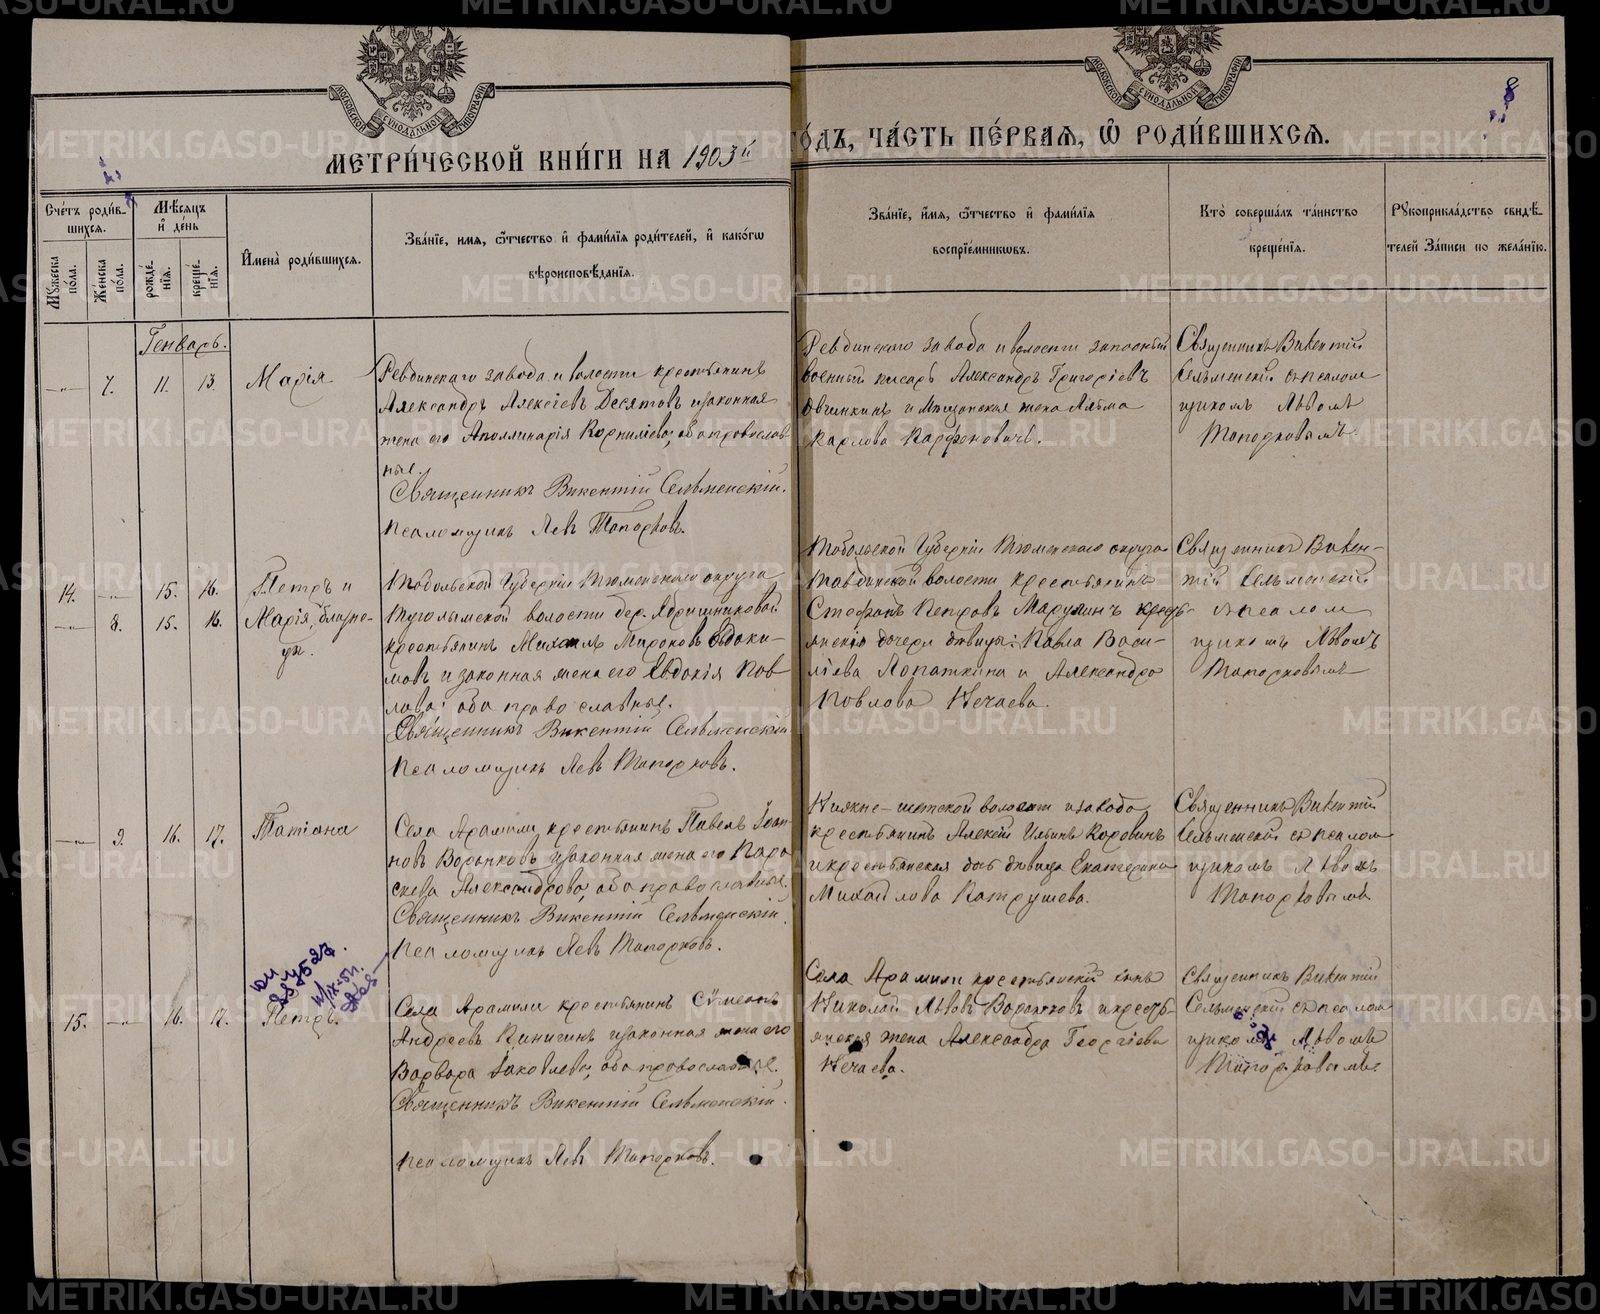 МОСКОВСКОЙ СѴНОДАЛЬНОЙ ТИПОГРАФІИ
МОСКОВСКОЙ СѴНОДАЛЬНОЙ ТИПОГРАФІИ
8
МЕТРИ́ЧЕСКОЙ КНИ́ГИ НА 1903й
ГО́ДЪ, ЧА́СТЬ ПЕ́РВАЯ, Ѡ҆ РОДИ́ВШИХСЯ.
Сче́тъ роди́в-
шихся.
Мꙋжеска по́ла.
Же́нска по́ла.
Мѣ́сяцъ и҆ де́нь
рожде́нїя.
креще́нїя.
И҆мена̀ роди́вшихся.
Зва́нїе, и҆мя, ѻ҆́тчество и҆ фами́лїѧ роди́телей, и҆ како́гѡ
вѣроисповѣ́данїя.
Зва́нїе, и҆́мя, ѻ҆́тчество и҆ фами́лїя
воспрїе́мникѡвъ.
Кто̀ соверша́лъ та́инство
креще́нїя.
Рꙋкоприкла́дство свидѣ́-
телей за́писи по жела́нїю.
Генварь.
—„— 7. 11. 13. Марія
Ревдинскаго завода и волости крестьянинъ
Александръ Алексіевъ Десятовъ и законная
жена его Аполлинарія Корниліева, оба православ-
ные.
Священникъ Викентій Сельменскій.
Псаломщикъ Левъ Топорковъ.
Ревдинскаго завода и волости запасный
военный писарь Александръ Григоріевъ
Овчинкинъ и Мѣщанская жена
Карлова Парфеновичъ.
Священникъ Викентій
Сельменскій съ псалом
щикомъ Львомъ
Топорковымъ.
14. —„— 15. 16. Петръ и
—„— 8. 15. 16. Марія, близне-
цы.
Тобольской Губерніи Тюменскаго округа
Тугулымской волости дер.
крестьянинъ Михаилъ Мироновъ Евдоки-
мовъ и законная жена его Евдокія Пав
лова; оба православные.
Священникъ Викентій Сельменскій
Псаломщикъ Левъ Топорковъ.
Тобольской Губерніи Тюменскаго округа
Тавдинской волости крестьянинъ
Стефанъ Петровъ и крест-
янскія дочери дѣвицы: Павла Васи-
ліева Лопаткина и Александра
Павлова Нечаева.
Священникъ Викен-
тій Сельменскій
съ псалом
щикомъ Львомъ
Топорковымъ
—„— 9. 16. 17. Татіана
Села Арамили крестьянинъ Павелъ Іоан-
новъ Воронковъ и законная жена его Пара
скева Александрова, оба православные.
Священникъ Викентій Сельменскій.
Псаломщикъ Левъ Топорковъ.
Нижне-исетской волости и завода
крестьянинъ Алексій Ильинъ Коровинъ
и крестьянская дѣвица Екатерина
Михайлова Патрушева.
Священникъ Викентій
Сельменскій съ псалом
щикомъ Львомъ
Топорковымъ
15. —„— 16. 17. Петръ.
Села Арамили крестьянинъ Сѵмеонъ
Андреевъ и законная жена его
Варвара Іаковлева, оба православные.
Священникъ Викентій Сельменскій.
Псаломщикъ Левъ Топорковъ.
Села Арамили крестьянскій сынъ
Николай Львовъ Воронковъ и кресть-
янская жена Александра Георгіева
Нечаева.
Священникъ Викентій
Сельменскій съ псалом
щикомъ Львомъ
Топорковымъ.
METRIKI.GASO-URAL.RU